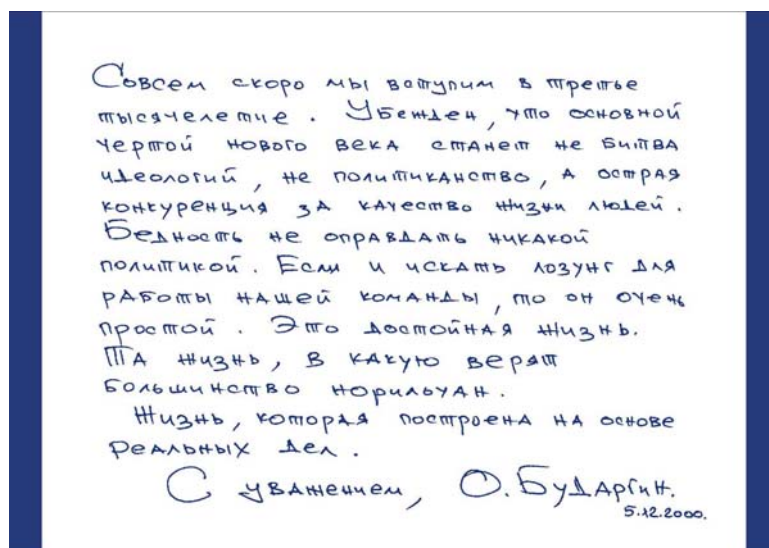 Совсем скоро мы вступим в третье
тысячелетие. Убежден, что основной
чертой нового века станет не битва
идеологий, не политиканство, а острая
конкуренция за качество жизни людей.
Бедность не оправдать никакой
политикой. Если и искать лозунг для
работы нашей команды, то он очень
простой. Это достойная жизнь.
Та жизнь, в какую верят
большинство норильчан.
Жизнь, которая построена на основе
реальных дел.
С уважением, О. Бударгин.
5.12.2000.